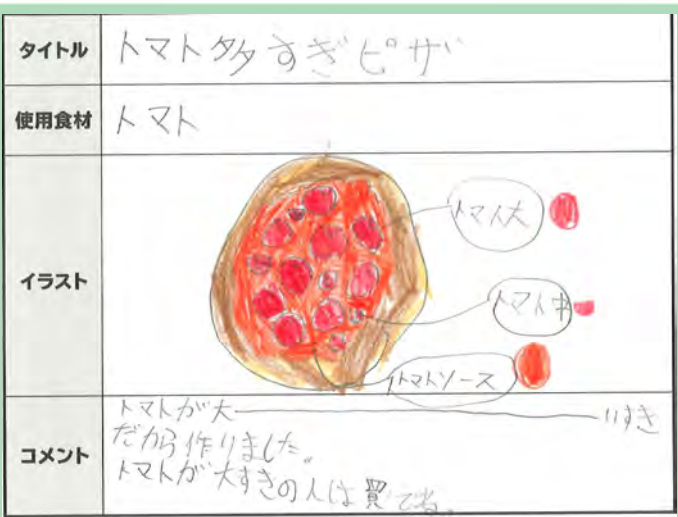 タイトル
トマト多すぎピザ
使用食材
トマト
イラスト
トマト大
トマト中
トマトソース
コメント
トマトが大――――――いすき
だから作りました。
トマトが大すきの人は買てね。